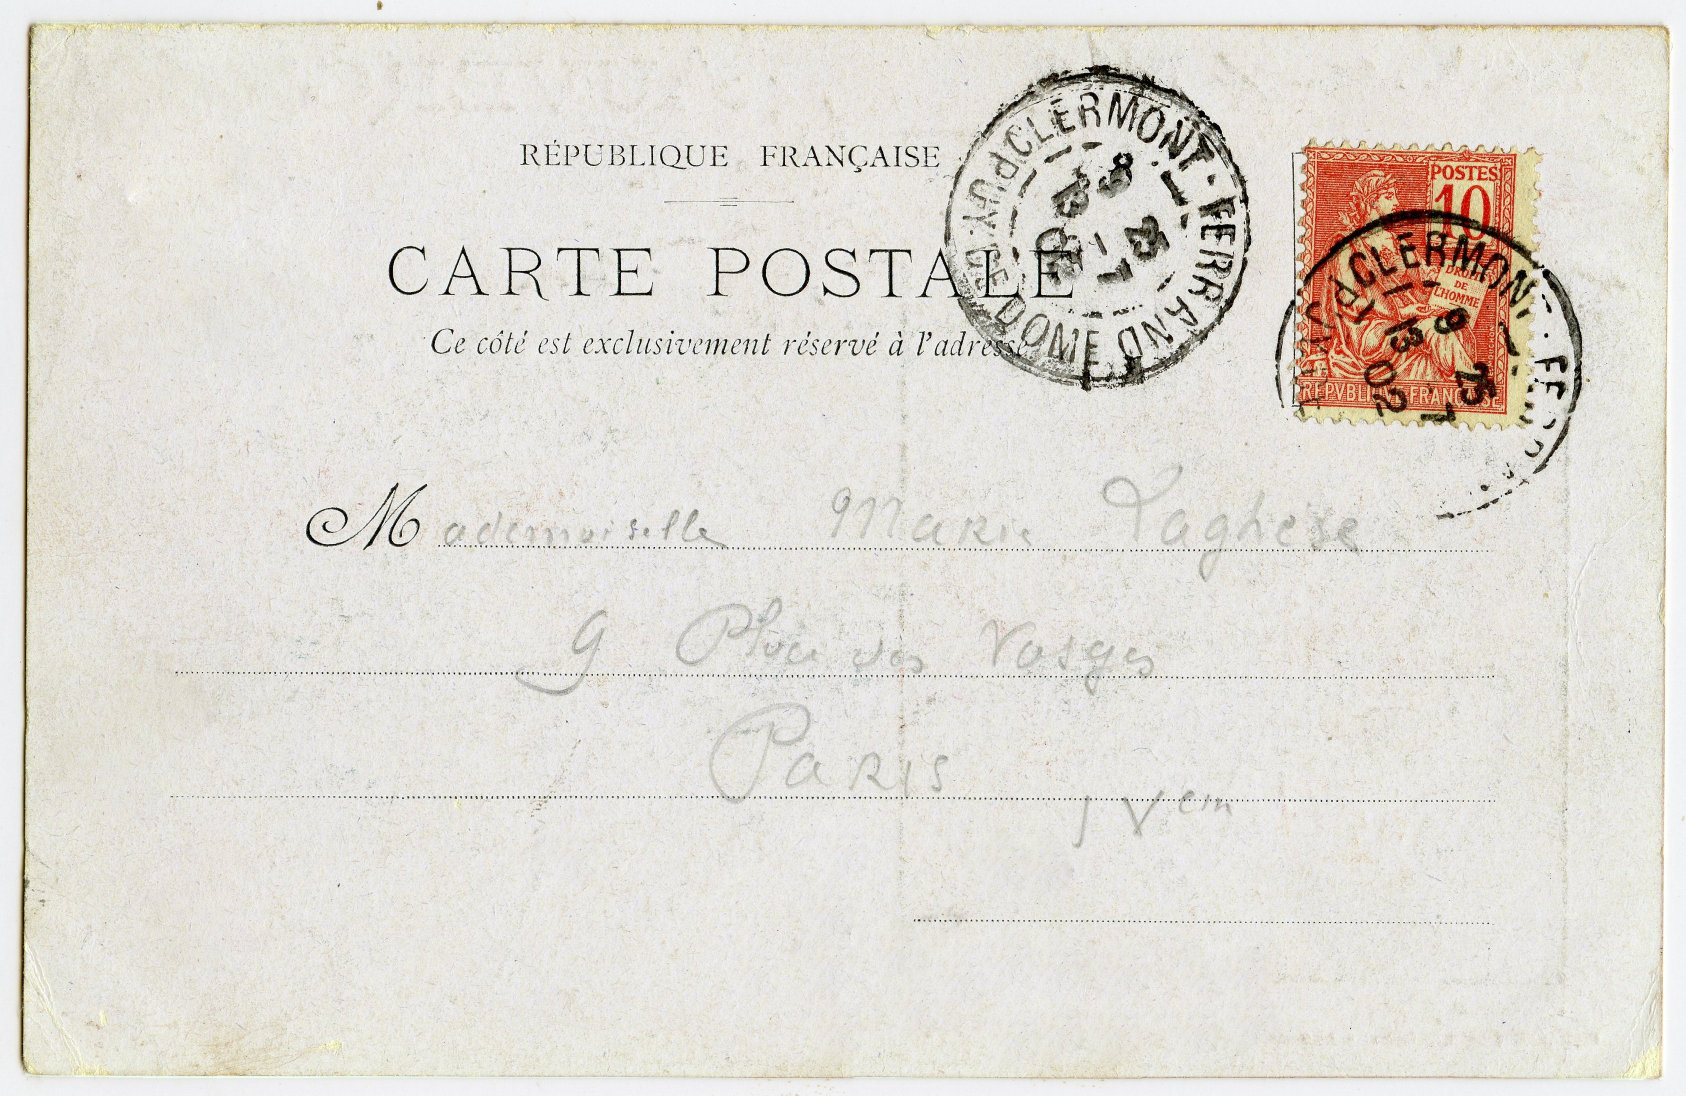 RÉPUBLIQUE FRANÇAISE
CARTE POSTALE
Ce côté est exclusivement réservé à l'adresse
CLERMONT-FERRAND
PUY-DE DOME
POSTES
10
DROITS
DE
L'HOMME
REPVBLIQVE FRANÇAISE
CLERMONT-FERR
13
02
Mademoiselle Marie
9 Place des Vosges
Paris